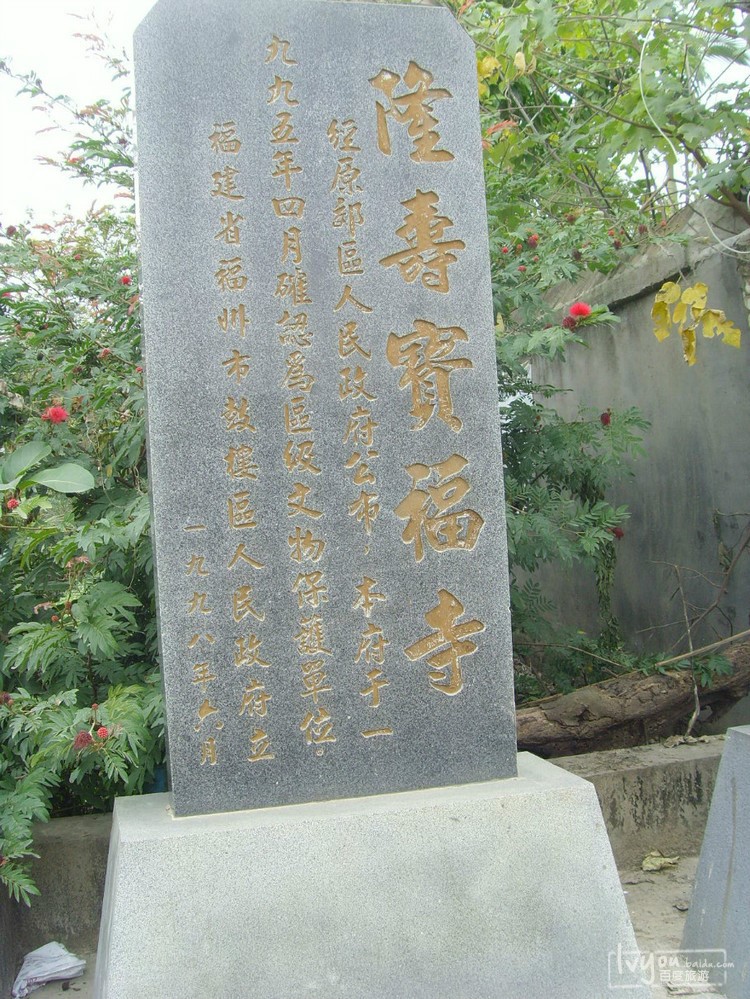 隆壽寶福寺
經原郊區人民政府公布，本府于一
九九五年四月確認爲區级文物保護單位。
福建省福州市鼓樓區人民政府立
一九九八年六月
lvyou.baidu.com
百度旅游